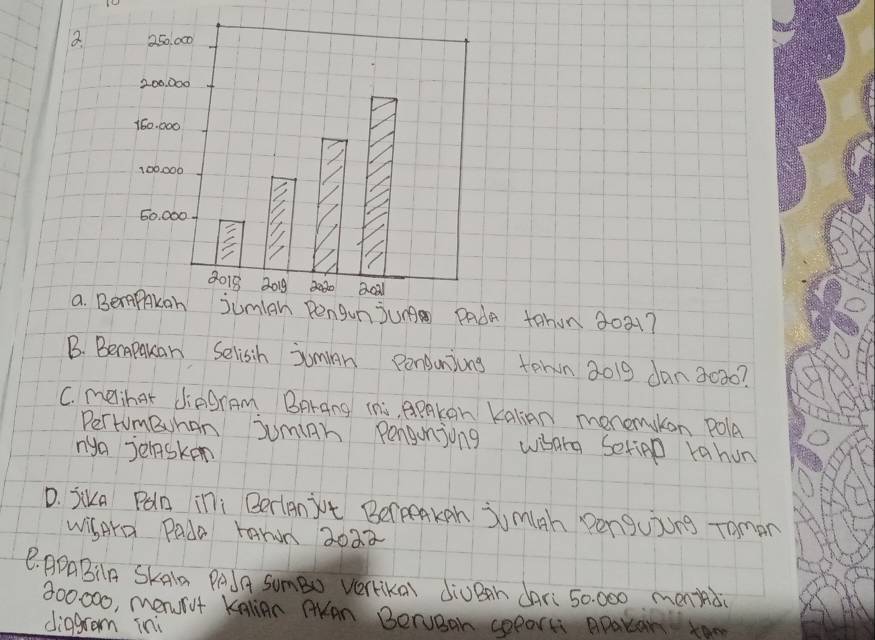 2.
250.000
200.000
150.000
100.000
50.000
2018 2019 2020 2021
a. Berapakah jumlah pengunjung pada tahun 2021?
B. Berapakah selisih jumlah pengunjung tahun 2019 dan 2020?
C. melihat diagram Batang ini, apakah kalian menemukan pola
pertumbuhan jumlah pengunjung wisata setiap tahun
nya jelaskan
D. jika pola ini Berlanjut Berapakah jumlah pengujung Taman
wisata pada tahun 2022
e. APABila skala pada sumbu vertikal diubah dari 50.000 menjadi
200.000, menurut kalian akan Berubah seperti apakah
diagram ini